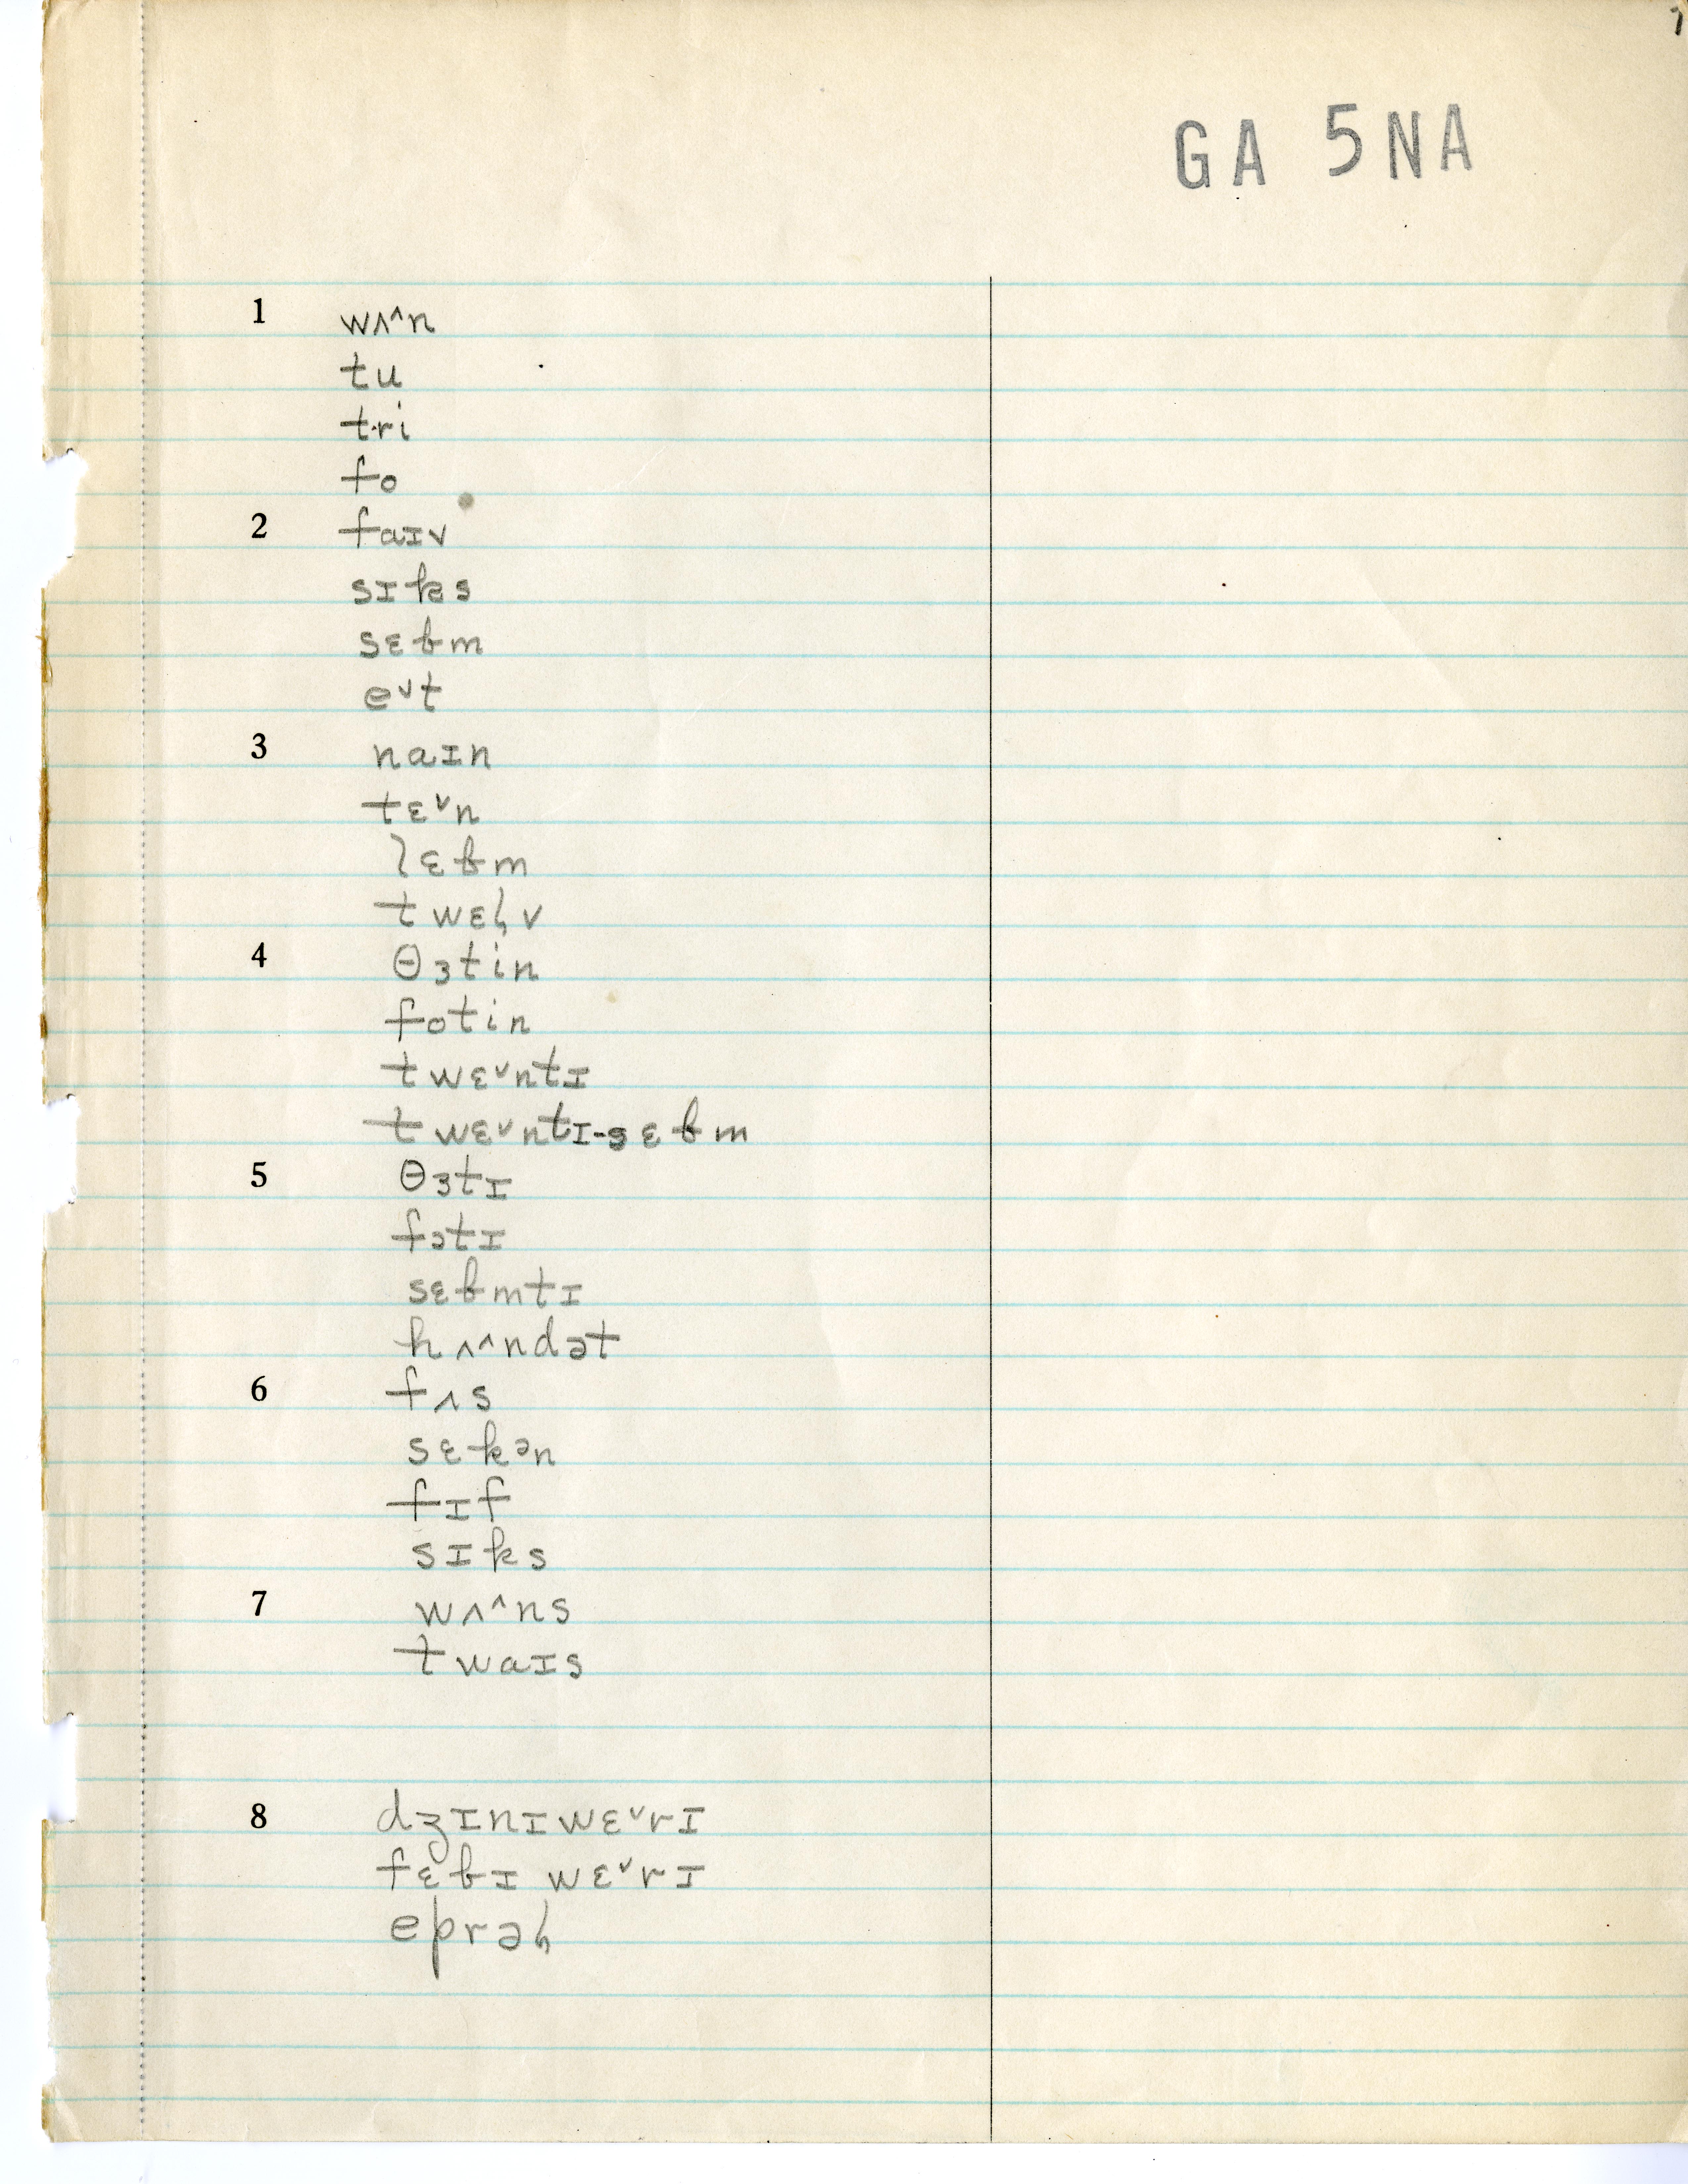 7
GA 5NA
1 wʌ^n
tu
tri
fo
2 faɪv
sɪks
sɛbm
e˅t
3 naɪn
tɛ˅n
lɛbm
twɛɫv
4 θɜtin
fotin
twɛ˅ntɪ
twɛ˅ntɪ-sɛbm
5 θɜtɪ
fɔtɪ
sɛbmtɪ
hʌ^ndət
6 fʌs
sɛkən
fɪf
sɪks
7 wʌ^ns
twaɪs
8 dʒɪnɪwɛ˅rɪ
fɛbɪ wɛ˅rɪ
eprəɫ